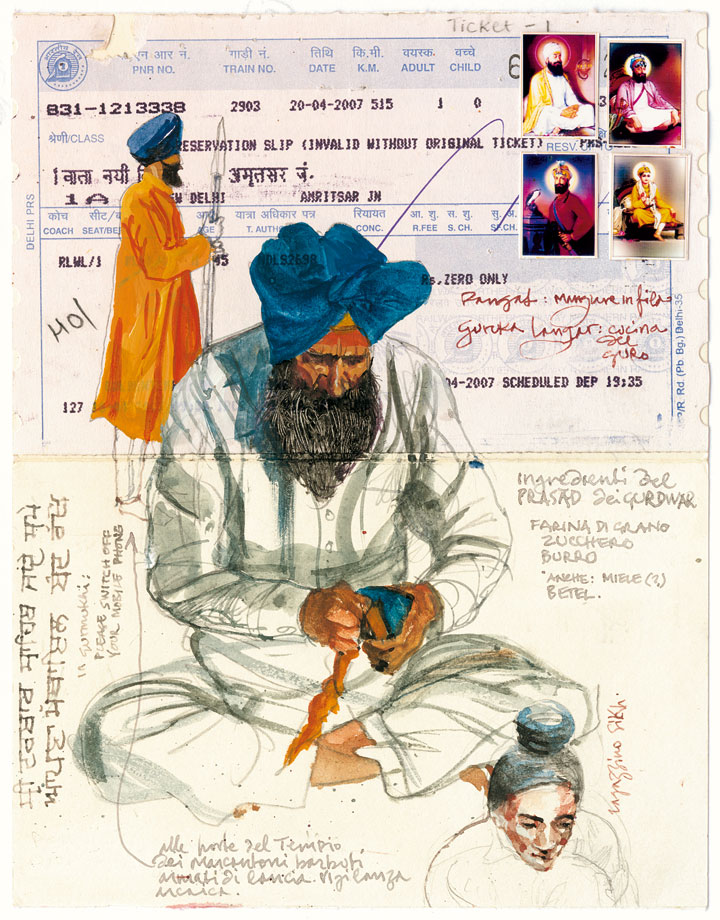 Ticket - 1
पी एन आर नं. गाड़ी नं. तिथि कि.मी. वयस्क बच्चे
PNR NO. TRAIN NO. DATE K.M. ADULT CHILD
831-1213338 2903 20-04-2007 515 1 0
श्रेणी/CLASS
RESERVATION SLIP (INVALID WITHOUT ORIGINAL TICKET) PRS
RESV.
नयी अमृतसर जं.
1A NEW DELHI AMRITSAR JN
कोच सीट/ यात्रा अधिकार पत्र रियायत आ. शु. स. शु. सु.
COACH SEAT/BE AGE T. AUTH CONC. R.FEE S. CH. SF.CH.
DELHI PRS
RLWL/1 45
Rs.ZERO ONLY
Pangat: mangiare in fila
Guru ka Langar: cucina
del
guro
HO1
04-2007 SCHEDULED DEP 19:35
127
R. Rd. (Pb Bg.) Delhi-35
in gurmukhi:
PLEASE SWITCH OFF
YOUR MOBILE PHONE
ingredienti del
PRASAD dei GURDWAR
FARINA DI GRANO
ZUCCHERO
BURRO
ANCHE: MIELE (?)
BETEL.
ragazzino sikh.
alle porte del Tempio
dei marcantoni barbuti
armati di lancia. vigilanza
arcaica.